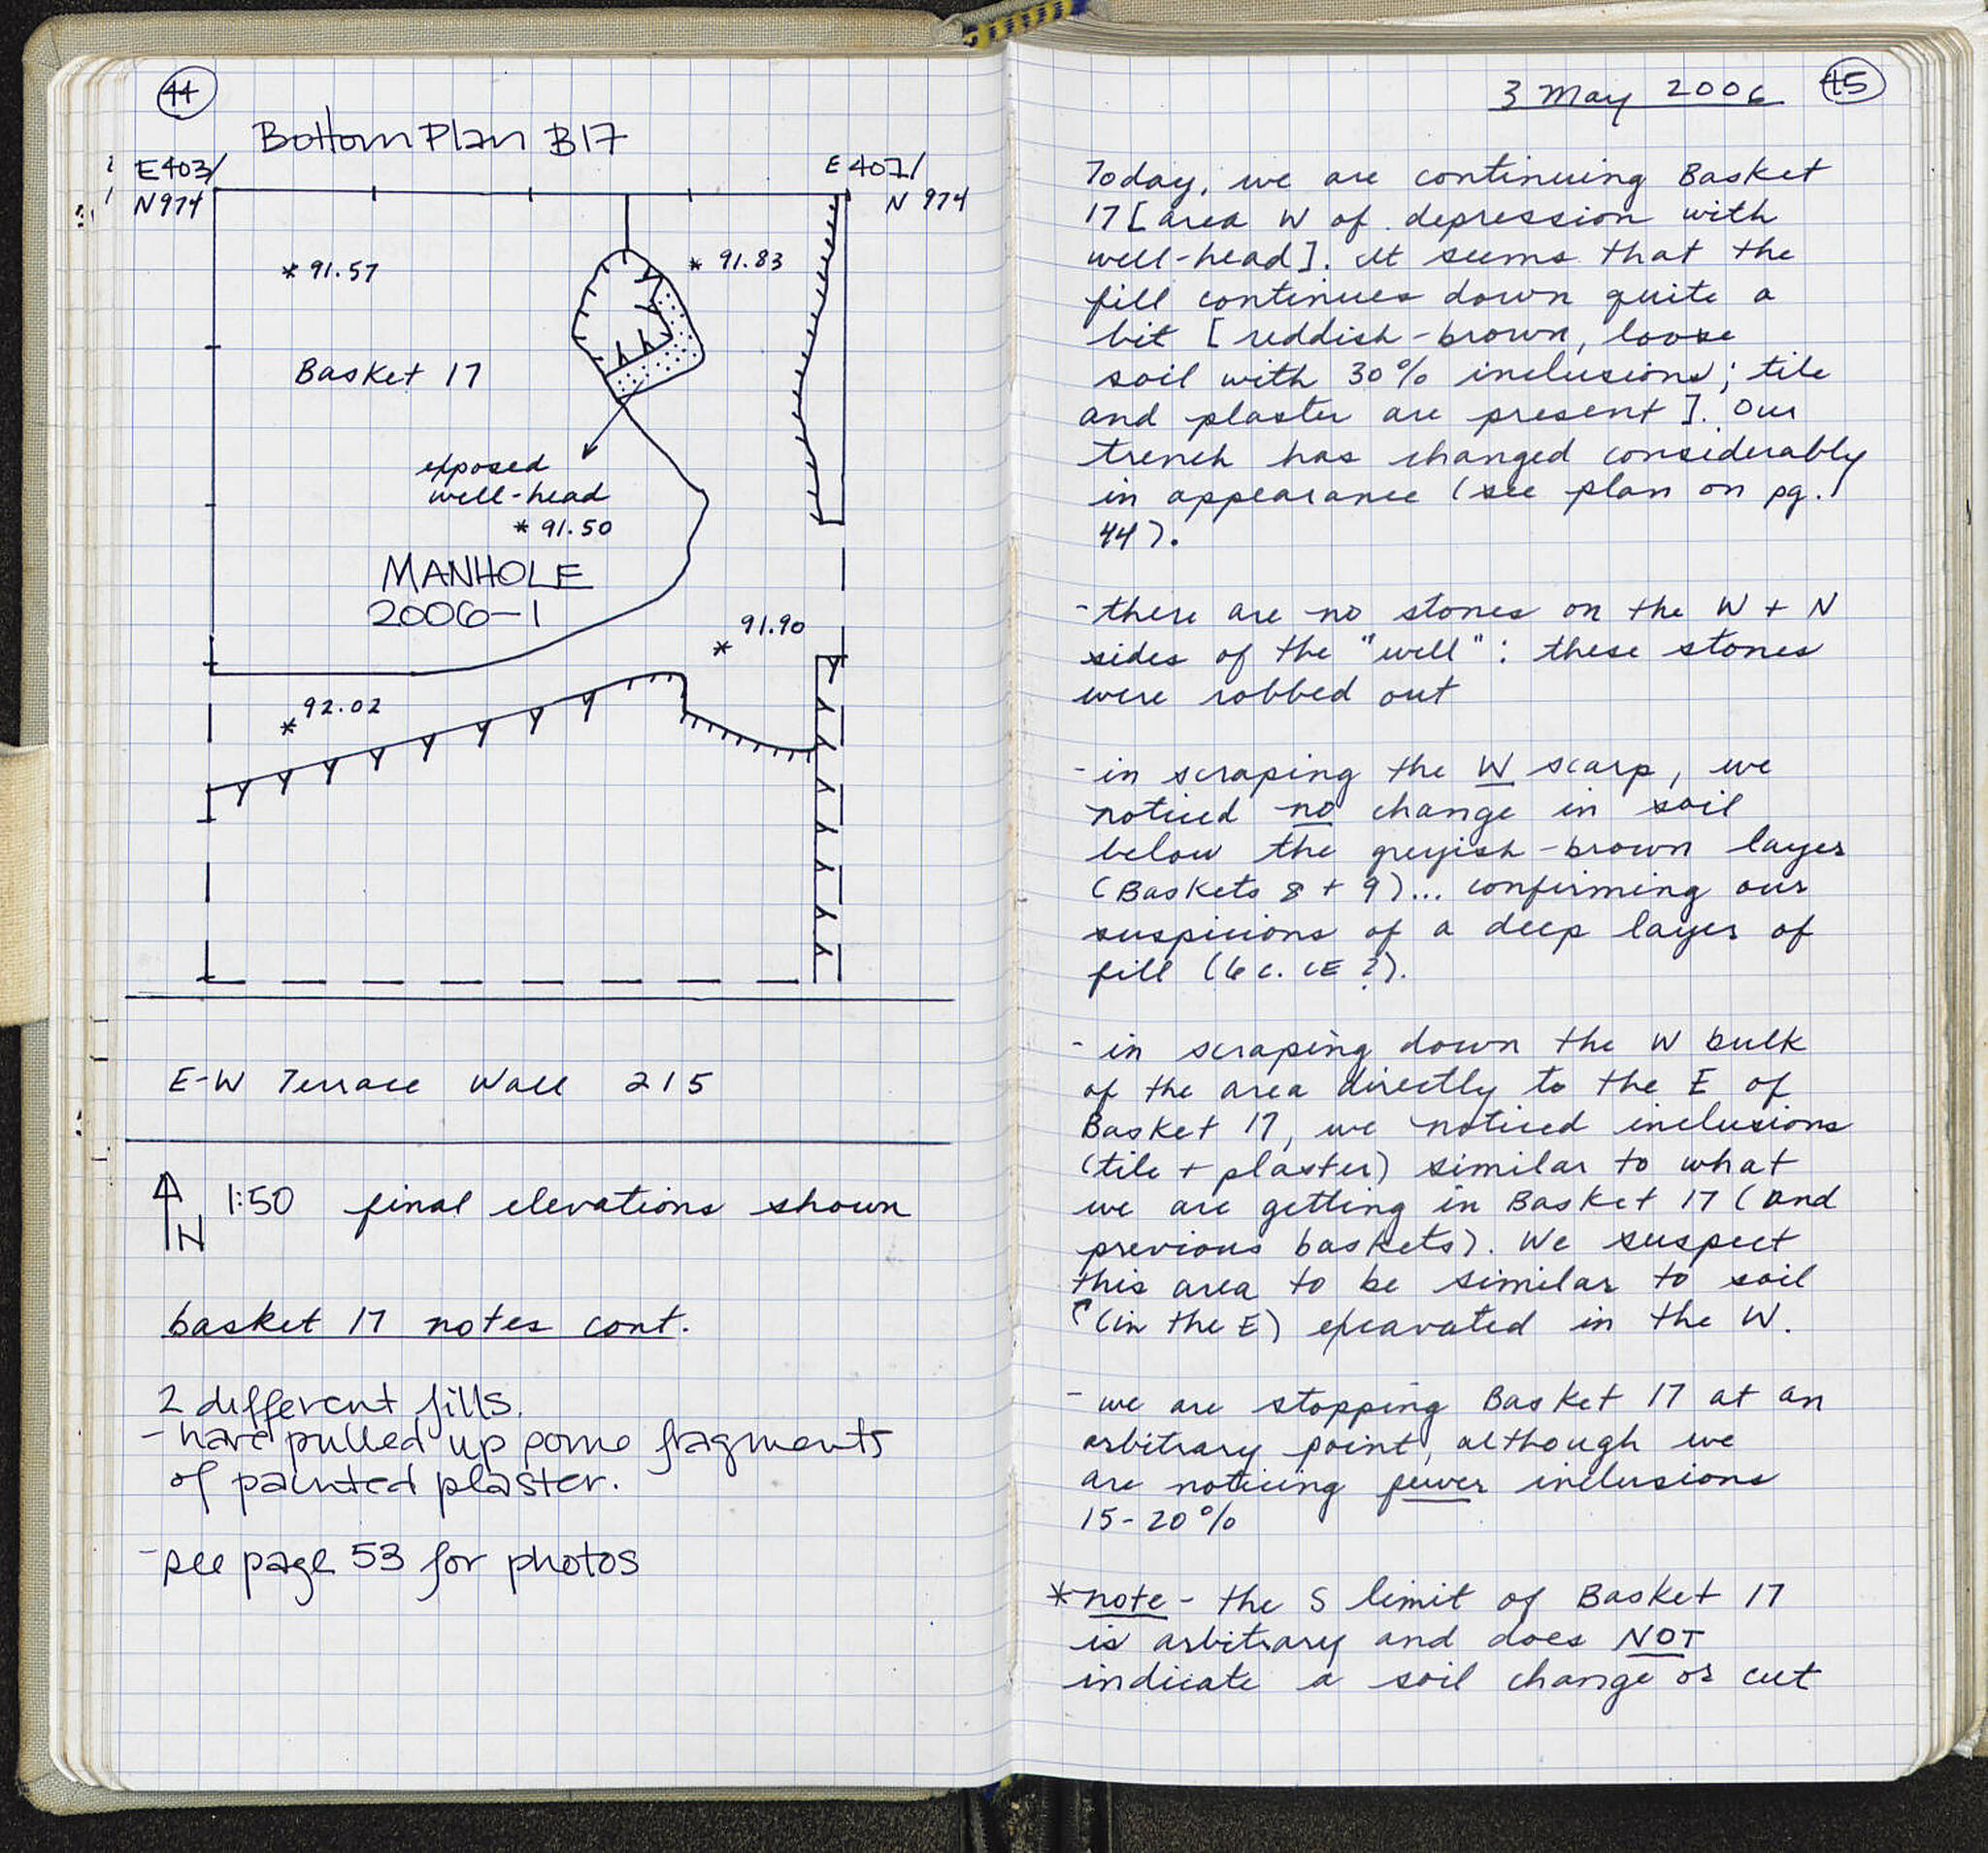 44
Bottom Plan B17
E403/
N974
E407/
N 974
* 91.57
* 91.83
Basket 17
exposed
well-head
* 91.50
MANHOLE
2006-1
91.90
*
92.02
*
E-W Terrace Wall 215
N 1:50 final elevations shown
basket 17 notes cont.
2 different fills.
- have pulled up some fragments
of painted plaster.
- see page 53 for photos
3 May 2006 45
Today, we are continuing Basket
17 [area W of depression with
well-head]. It seems that the
fill continues down quite a
bit [reddish-brown, loose
soil with 30% inclusions; tile
and plaster are present]. Our
trench has changed considerably
in appearance (see plan on pg.
44).
- there are no stones on the W + N
sides of the "well": these stones
were robbed out
- in scraping the W scarp, we
noticed no change in soil
below the greyish-brown layer
(Baskets 8 + 9)... confirming our
suspicions of a deep layer of
fill (6 c. CE ?).
- in scraping down the W bulk
of the area directly to the E of
Basket 17, we noticed inclusions
(tile + plaster) similar to what
we are getting in Basket 17 (and
previous baskets). We suspect
this area to be similar to soil
(in the E) excavated in the W.
- we are stopping Basket 17 at an
arbitrary point, although we
are noticing fewer inclusions
15-20%
* note - the S limit of Basket 17
is arbitrary and does NOT
indicate a soil change or cut